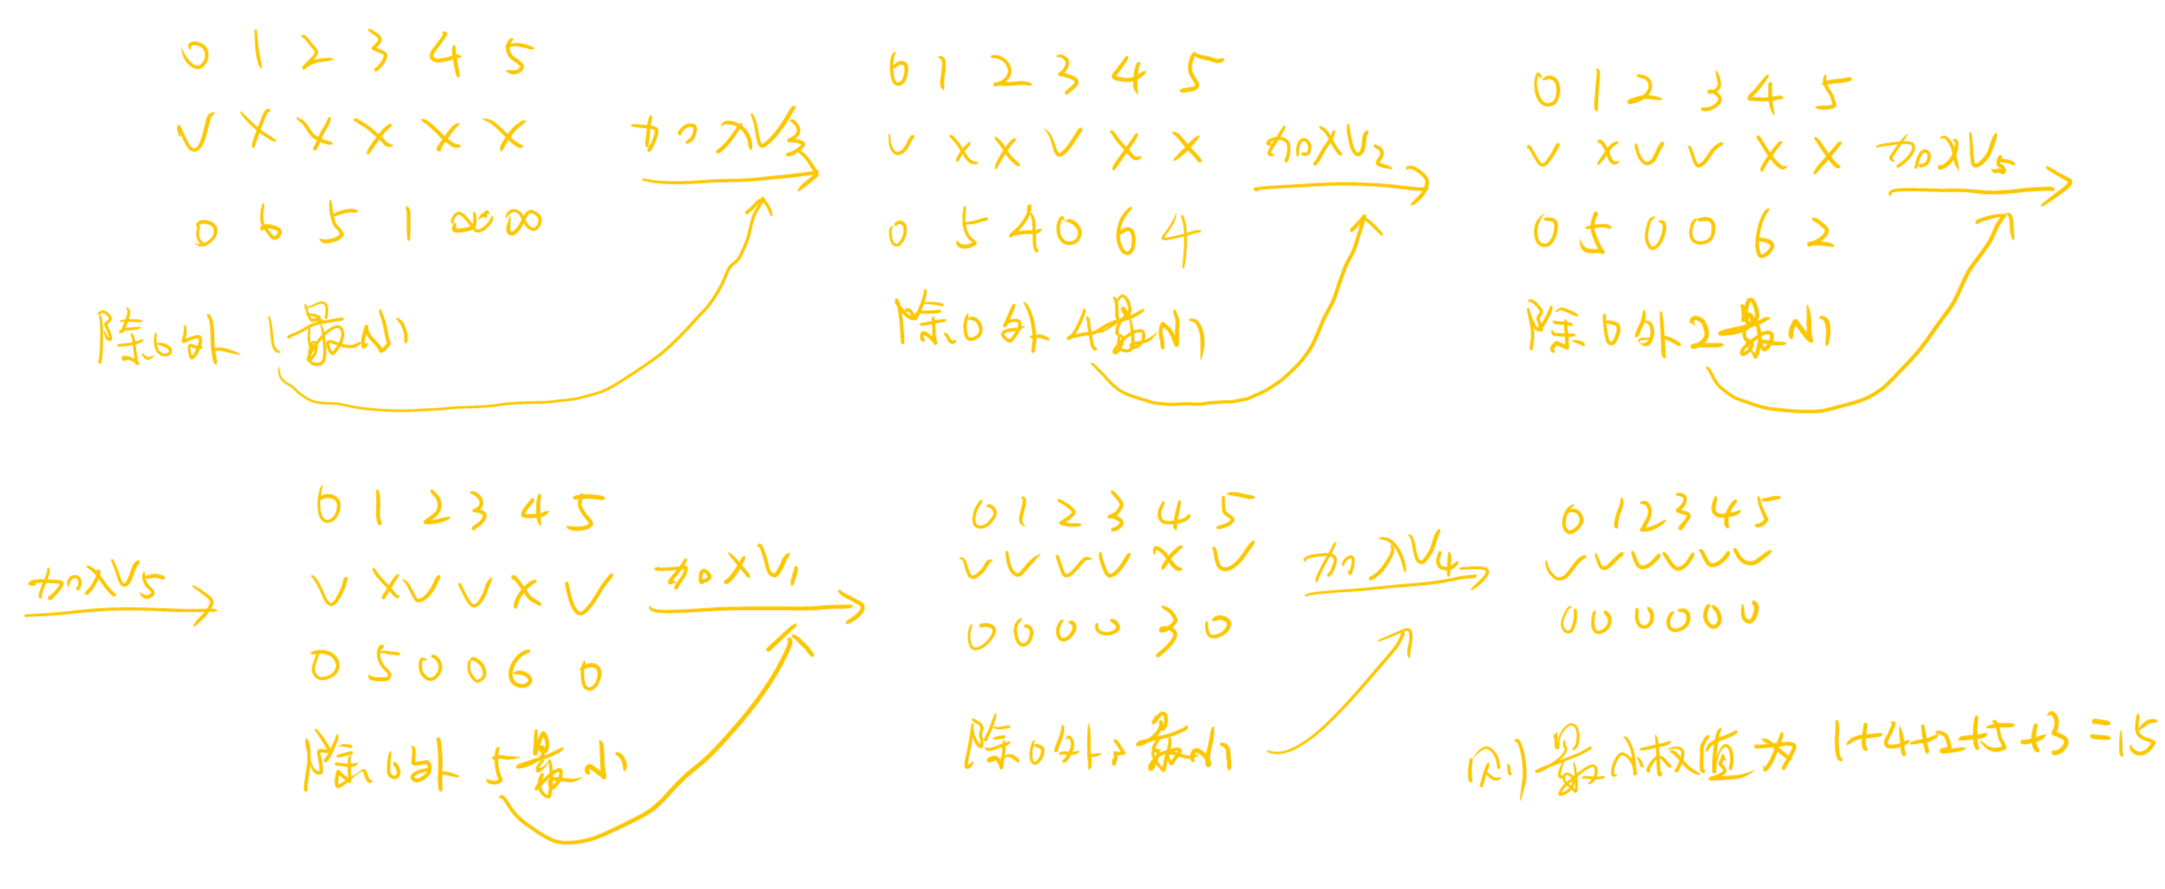 0 1 2 3 4 5
√ × × × × ×
0 6 5 1 ∞ ∞
除0外 1最小
加入V3
0 1 2 3 4 5
√ × × √ × ×
0 5 4 0 6 4
除0外4最小
加入V2
0 1 2 3 4 5
√ × √ √ × ×
0 5 0 0 6 2
除0外2最小
加入V5
加入V5
0 1 2 3 4 5
√ × √ √ × √
0 5 0 0 6 0
除0外 5最小
加入V1
0 1 2 3 4 5
√ √ √ √ × √
0 0 0 0 3 0
除0外3最小
加入V4
0 1 2 3 4 5
√ √ √ √ √ √
0 0 0 0 0 0
则最小权值为 1+4+2+5+3=15